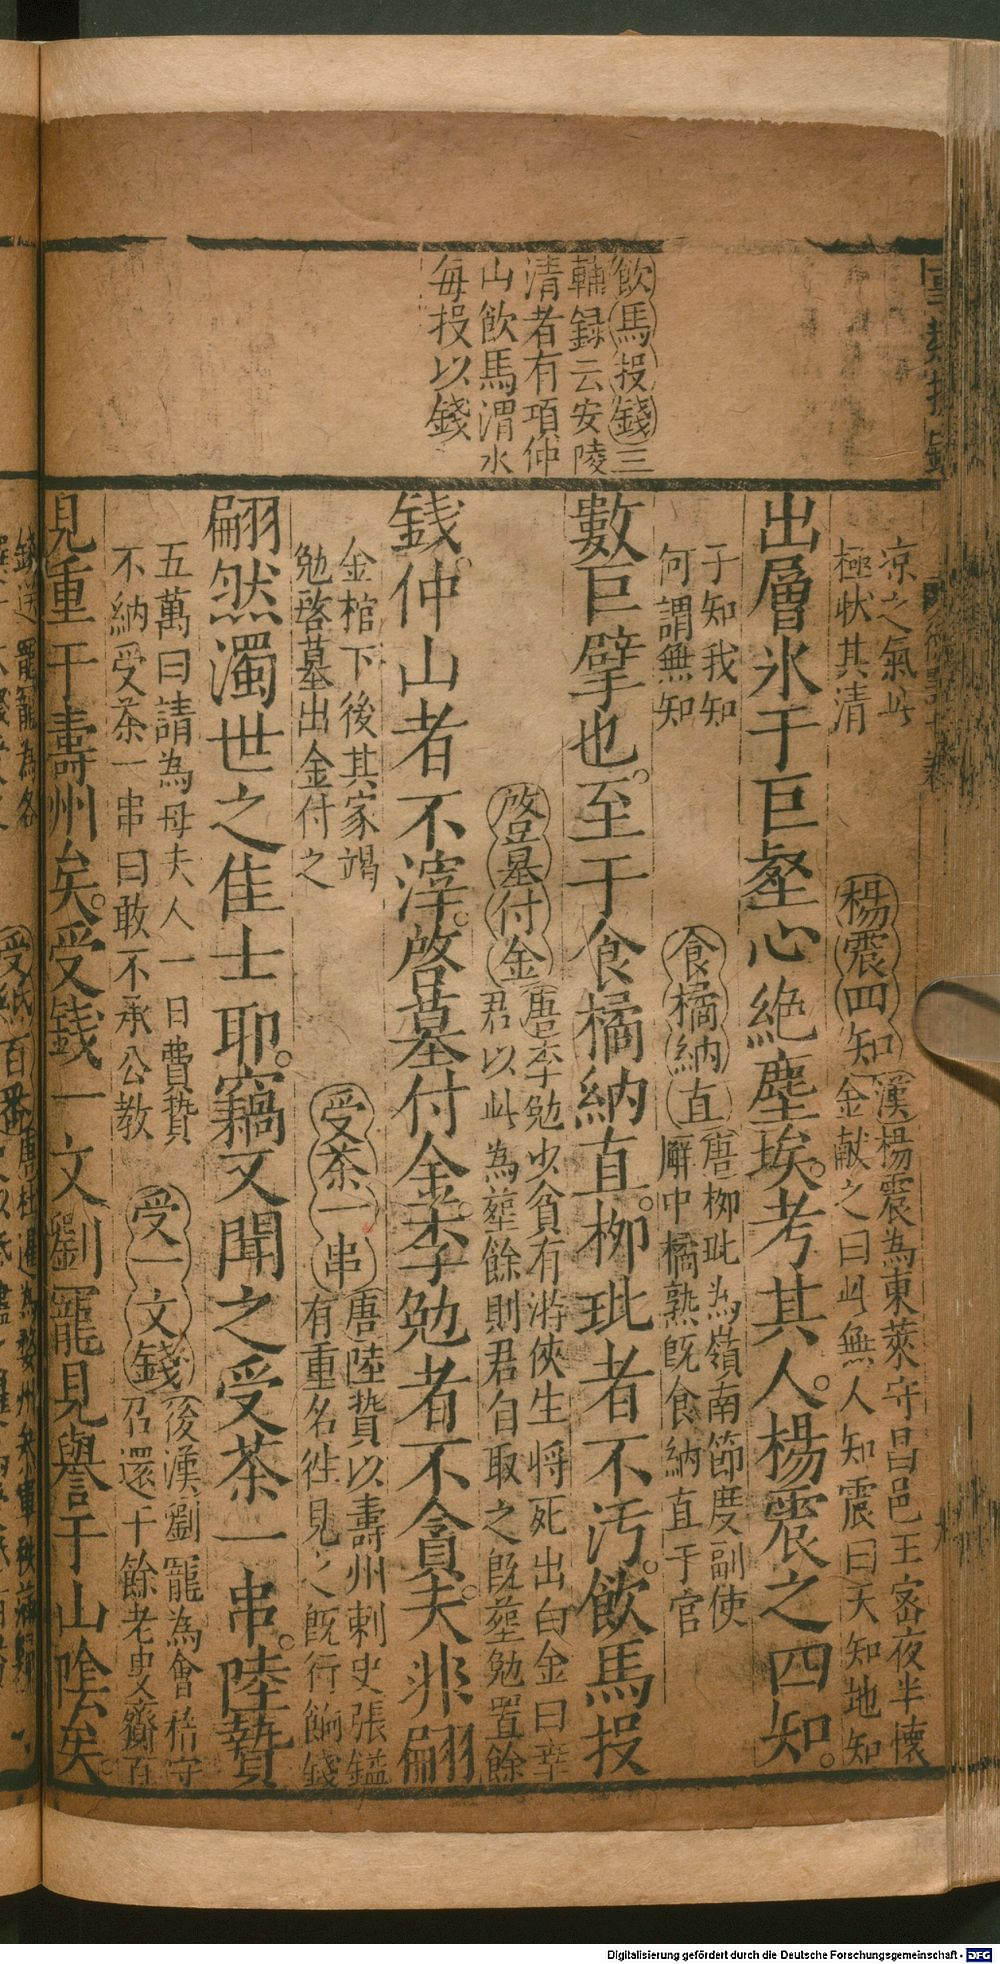 飲馬投錢三
輔録云安陵
清者有項仲
山飲馬渭水
每投以錢
凉之氣此
極状其清
楊震四知
漢楊震為東萊守昌邑王密夜半懷
金献之曰此無人知震曰天知地知
出層氷于巨壑心絶塵埃。考其人。楊震之四知。
子知我知
何謂無知
食橘納直
唐栁玭為嶺南節度副使
廨中橘熟旣食納直于官
數巨擘也。至于食橘納直。栁玭者不汚。飲馬投
啓墓付金
唐李勉少貧有游俠生将死出白金曰幸
君以此為葬餘則君自取之旣葬勉置餘
錢。仲山者不滓。啓墓付金。李勉者不貪。夫非翩
金棺下後其家謁
勉啓墓出金付之
受茶一串
唐陸贄以壽州刺史張鎰
有重名徃見之旣行餉錢
翩然濁世之佳士耶。竊又聞之受茶一串。陸贄
五萬曰請為母夫人一日費贄
不納受茶一串曰敢不承公教
受一文錢
後漢劉寵為會稽守
召還千餘老叟齎百
見重于壽州矣。受錢一文劉寵見譽于山陰矣。
Digitalisierung gefördert durch die Deutsche Forschungsgemeinschaft - DFG